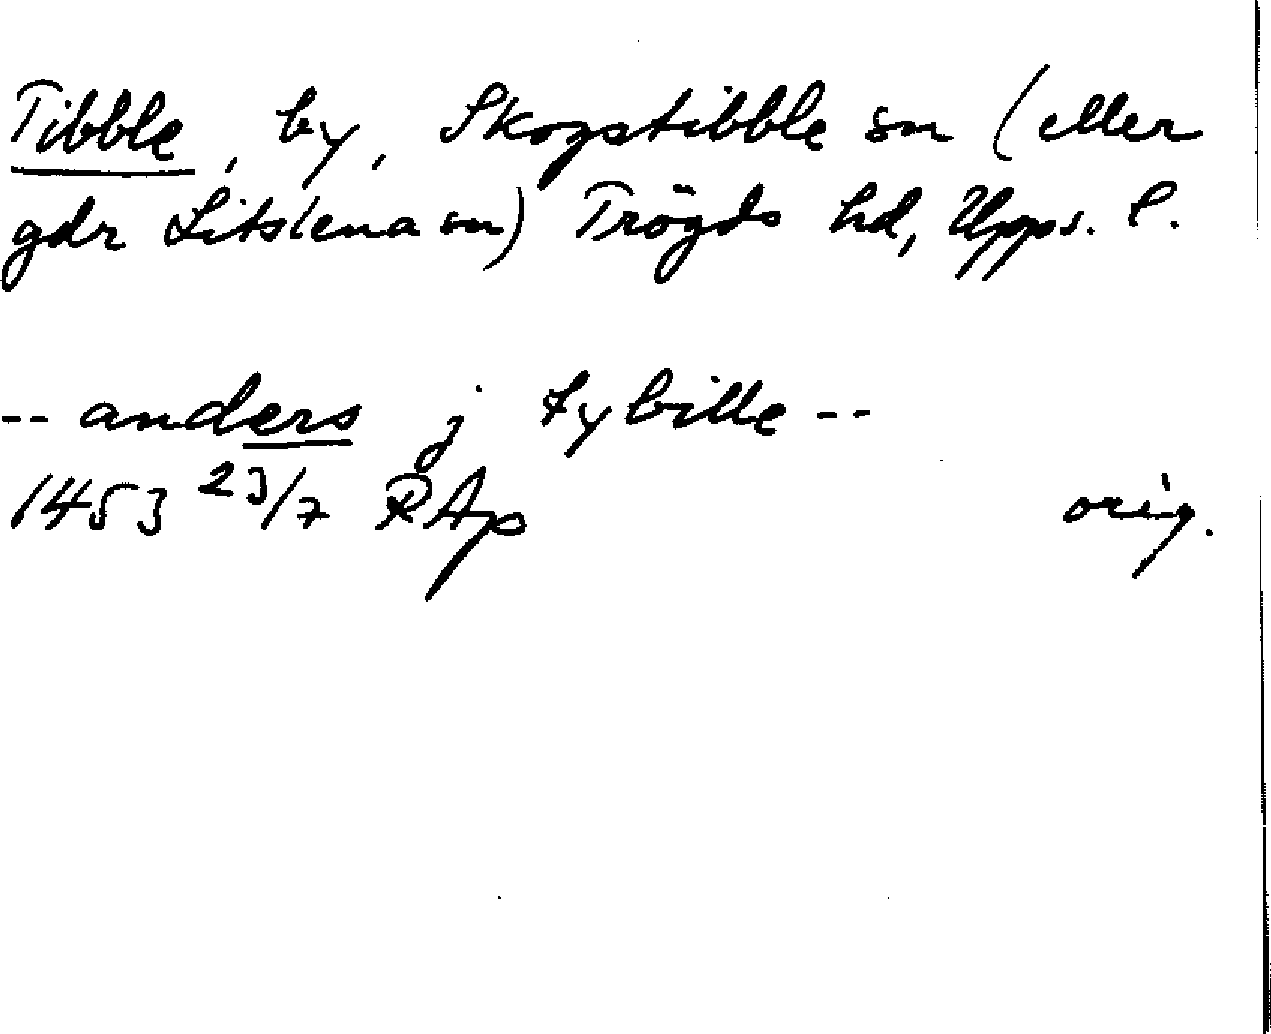 Tibble, by, Skogstibble sn (eller
gdr Litslena sn) Trögds hd, Upps. l.
-- anders j tybille --
1453 23/7 RAp orig.